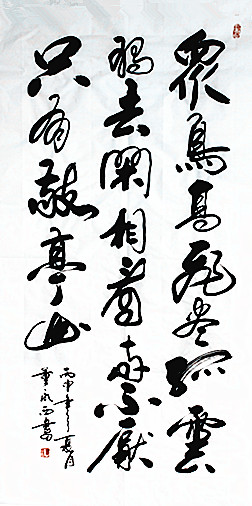 眾鳥高飛盡孤雲
獨去閑相看兩不厭
只有敬亭山
丙申年之夏月
董永西書